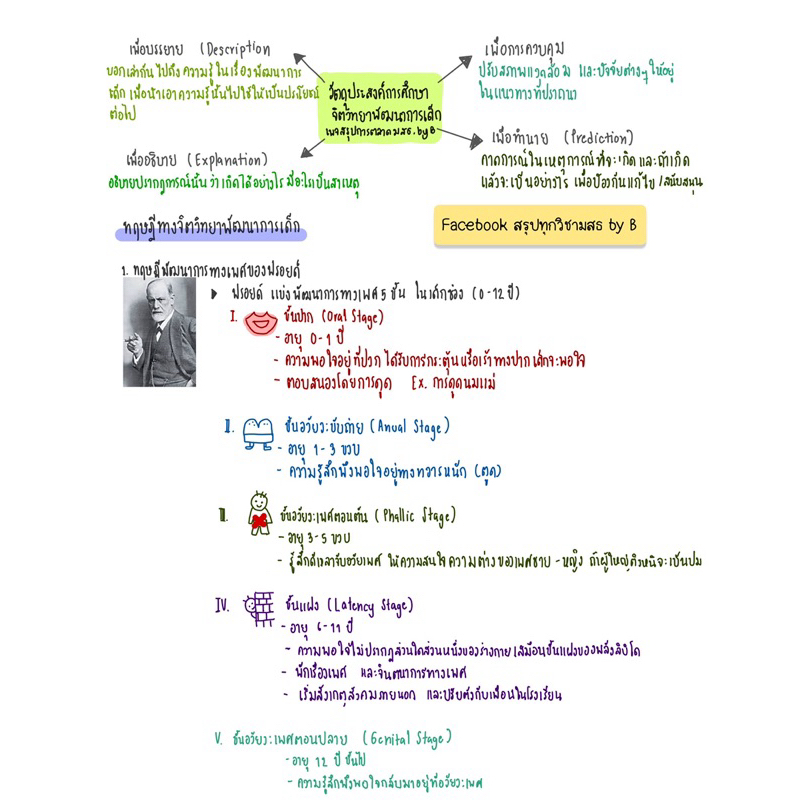 เพื่อบรรยาย (Description
บอกเล่ากันไปถึง ความรู้ ในเรื่องพัฒนาการ
เด็ก เพื่อนำเอาความรู้นั้นไปใช้ให้เป็นประโยชน์
ต่อไป
เพื่อการควบคุม
ปรับสภาพแวดล้อม และปัจจัยต่างๆ ให้อยู่
ในแนวทางที่ปรารถนา
วัตถุประสงค์การศึกษา
จิตวิทยาพัฒนาการเด็ก
เพจสรุปการตลาด มสธ. by B
เพื่ออธิบาย (Explanation)
อธิบายปรากฏการณ์นั้น ว่า เกิดได้อย่างไร มีอะไรเป็นสาเหตุ
เพื่อทำนาย (Prediction)
คาดการณ์ในเหตุการณ์ที่จะเกิด และถ้าเกิด
แล้วจะเป็นอย่างไร เพื่อป้องกันแก้ไข /สนับสนุน
ทฤษฎีทางจิตวิทยาพัฒนาการเด็ก
Facebook สรุปทุกวิชามสธ by B
1. ทฤษฎีพัฒนาการทางเพศของฟรอยด์
ฟรอยด์ แบ่งพัฒนาการทางเพศ 5 ขั้น ในเด็กช่วง (0-12 ปี)
I. ขั้นปาก (Oral Stage)
- อายุ 0-1 ปี
- ความพอใจอยู่ที่ปาก ได้รับการกระตุ้นหรือเร้าทางปาก เด็กจะพอใจ
- ตอบสนองโดยการดูด Ex. การดูดนมแม่
II. ขั้นอวัยวะขับถ่าย (Anual Stage)
- อายุ 1-3 ขวบ
- ความรู้สึกพึงพอใจอยู่ทางทวารหนัก (ตูด)
III. ขั้นอวัยวะเพศตอนต้น (Phallic Stage)
- อายุ 3-5 ขวบ
- รู้สึกดีเวลาจับอวัยเพศ ให้ความสนใจความต่างของเพศชาย - หญิง ถ้าผู้ใหญ่ตำหนิจะเป็นปม
IV. ขั้นแฝง (Latency Stage)
- อายุ 6-11 ปี
- ความพอใจไม่ปรากฏส่วนใดส่วนหนึ่งของร่างกาย เสมือนขั้นแฝงของพลังลิบิโด
- พักเรื่องเพศ และจินตนาการทางเพศ
- เริ่มสังเกตุสังคมภายนอก และปรับตัวกับเพื่อนในโรงเรียน
V. ขั้นอวัยวะเพศตอนปลาย (Genital Stage)
- อายุ 12 ปี ขึ้นไป
- ความรู้สึกพึงพอใจกลับมาอยู่ที่อวัยวะเพศ